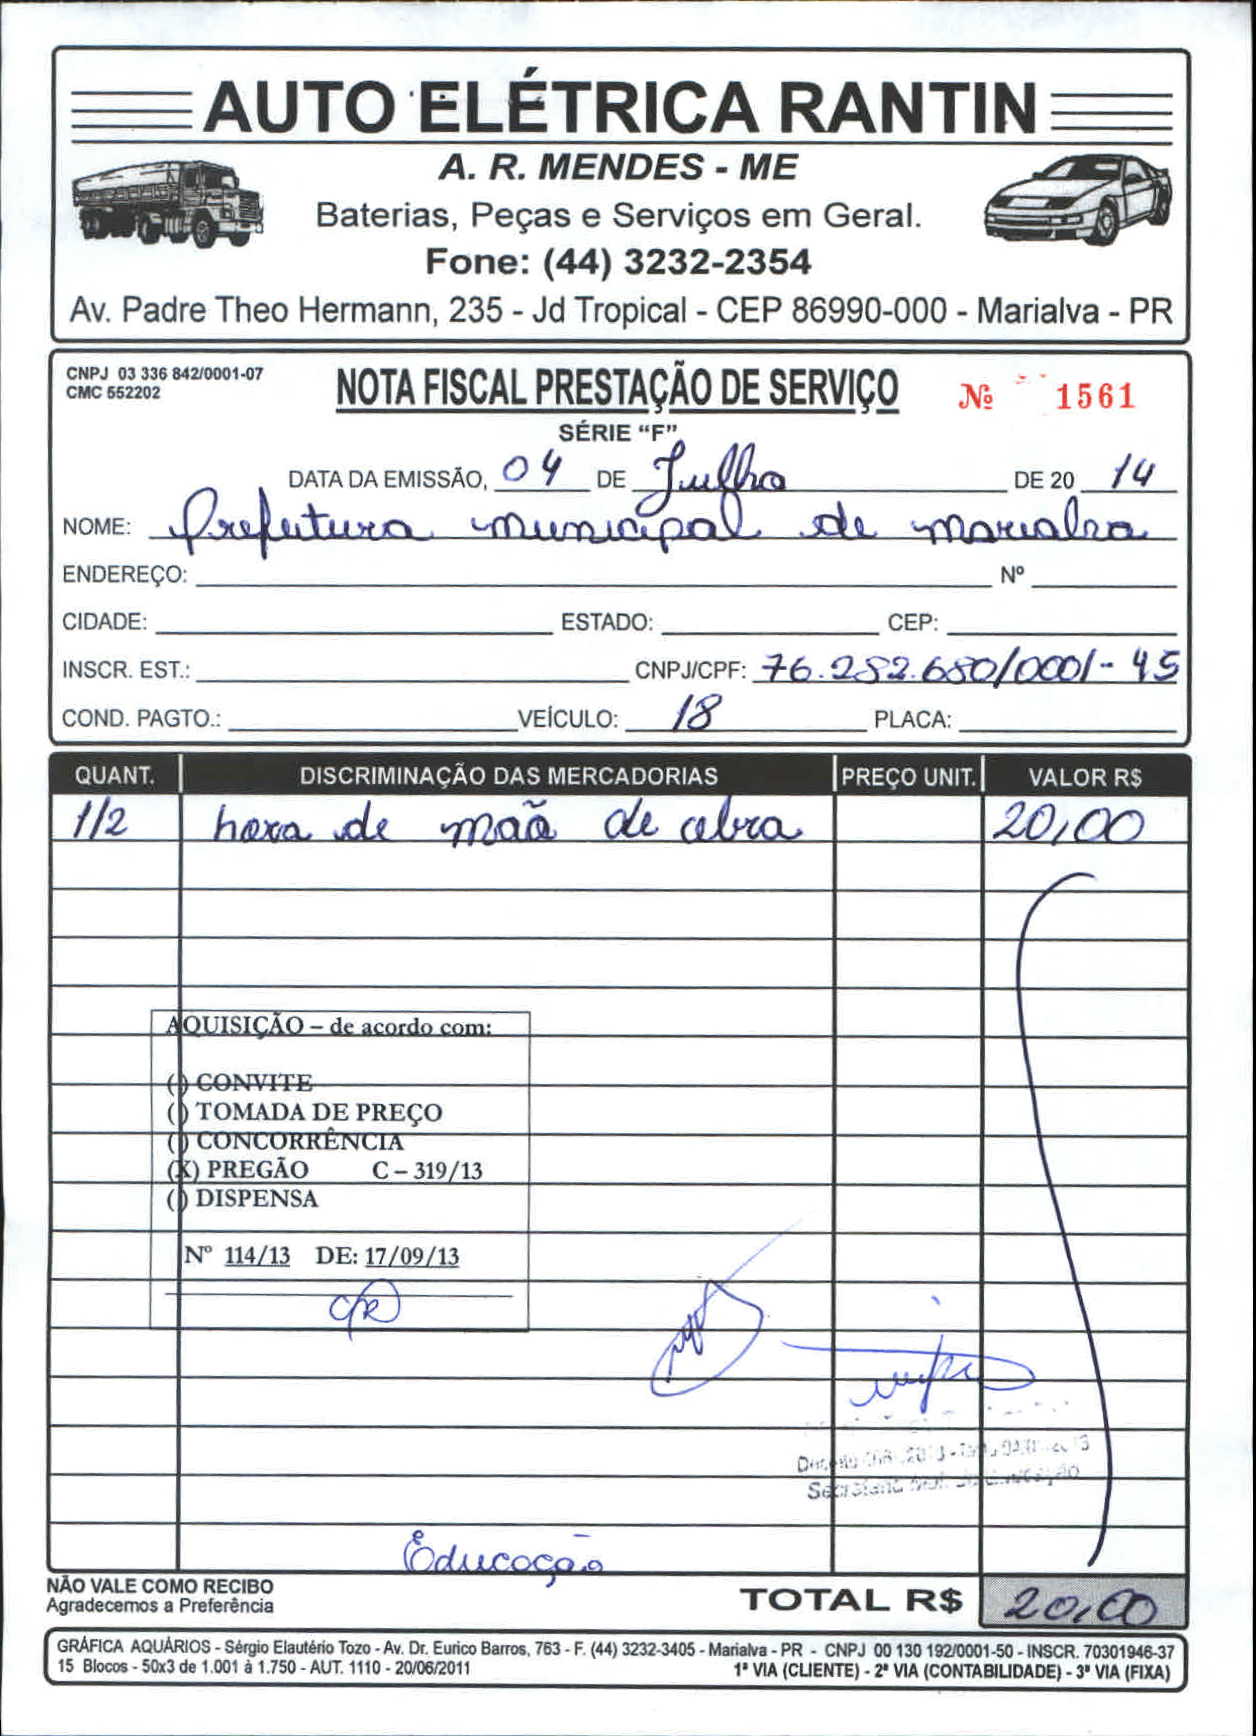 AUTO ELÉTRICA RANTIN
A. R. MENDES - ME
Baterias, Peças e Serviços em Geral.
Fone: (44) 3232-2354
Av. Padre Theo Hermann, 235 - Jd Tropical - CEP 86990-000 - Marialva - PR
CNPJ 03 336 842/0001-07
CMC 552202
NOTA FISCAL PRESTAÇÃO DE SERVIÇO
Nº 1561
SÉRIE “F”
DATA DA EMISSÃO, 04 DE Julho DE 20 14
NOME: Prefeitura municipal de marialva
ENDEREÇO: Nº
CIDADE: ESTADO: CEP:
INSCR. EST.: CNPJ/CPF: 76.282.680/0001-45
COND. PAGTO.: VEÍCULO: 18 PLACA:
QUANT. DISCRIMINAÇÃO DAS MERCADORIAS PREÇO UNIT. VALOR R$
1/2 hora de mão de obra 20,00
AQUISIÇÃO – de acordo com:
() CONVITE
() TOMADA DE PREÇO
() CONCORRÊNCIA
(X) PREGÃO C – 319/13
() DISPENSA
Nº 114/13 DE: 17/09/13
Educação
NÃO VALE COMO RECIBO
Agradecemos a Preferência
TOTAL R$ 20,00
GRÁFICA AQUÁRIOS - Sérgio Elautério Tozo - Av. Dr. Eurico Barros, 763 - F. (44) 3232-3405 - Marialva - PR - CNPJ 00 130 192/0001-50 - INSCR. 70301946-37
15 Blocos - 50x3 de 1.001 à 1.750 - AUT. 1110 - 20/06/2011
1ª VIA (CLIENTE) - 2ª VIA (CONTABILIDADE) - 3ª VIA (FIXA)